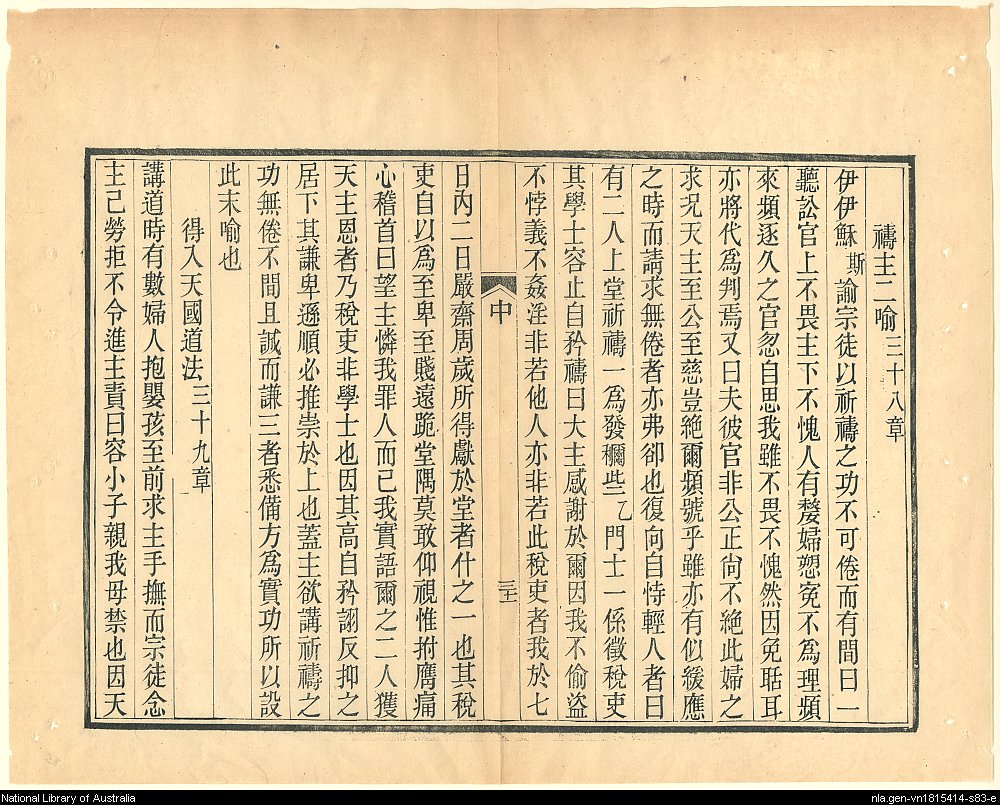 禱主二喻三十八章
伊伊穌斯諭宗徒以祈禱之功不可倦而有間曰一
聽訟官上不畏主下不愧人有嫠婦愬寃不爲理頻
來頻逐久之官忽自思我雖不畏不愧然因免聒耳
亦將代爲判焉又曰夫彼官非公正尙不絶此婦之
求況天主至公至慈豈絶爾頻號乎雖亦有似緩應
之時而請求無倦者亦弗卻也復向自恃輕人者曰
有二人上堂祈禱一爲發䆁些乙門士一係徵稅吏
其學士容止自矜禱曰大主感謝於爾因我不偷盜
不悖義不姦淫非若他人亦非若此稅吏者我於七
中
三十
日內二日嚴齋周歲所得獻於堂者什之一也其稅
吏自以爲至卑至賤遠跪堂隅莫敢仰視惟拊膺痛
心稽首曰望主憐我罪人而已我實語爾之二人獲
天主恩者乃稅吏非學士也因其高自矜詡反抑之
居下其謙卑遜順必推崇於上也蓋主欲講祈禱之
功無倦不間且誠而謙三者悉備方爲實功所以設
此末喻也
得入天國道法三十九章
講道時有數婦人抱嬰孩至前求主手撫而宗徒念
主已勞拒不令進主責曰容小子親我毋禁也因天
National Library of Australia
nla.gen-vn1815414-s83-e